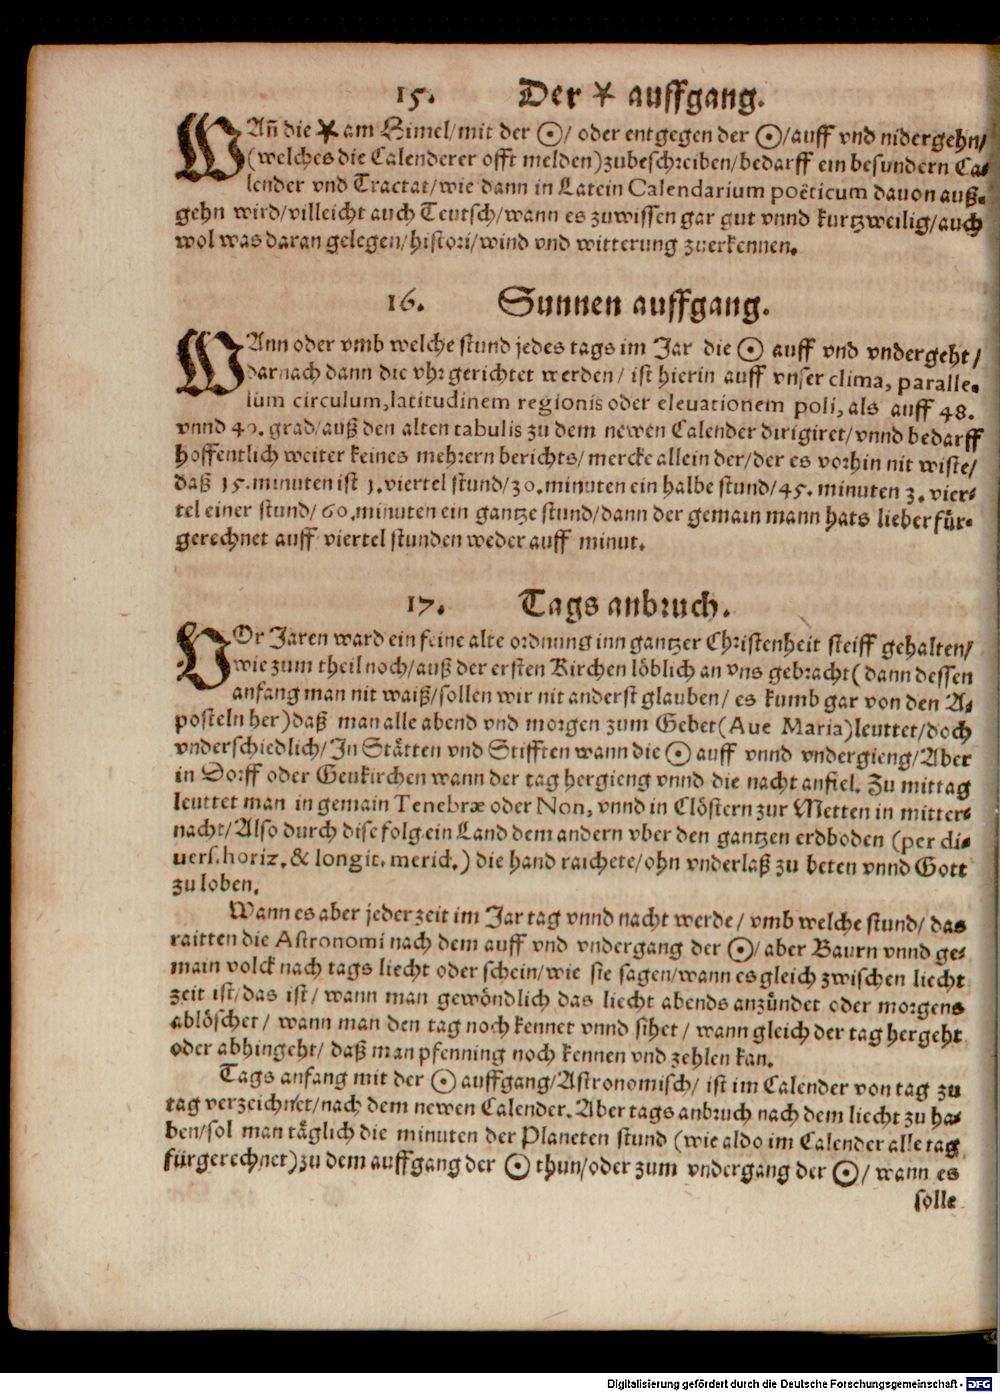 15. Der ⚹ auffgang.
WAñ die ⚹ am Himel/mit der ☉/ oder entgegen der ☉/auff vnd nidergehn/
(welches die Calenderer offt melden)zubeschreiben/bedarff ein besundern Ca-
lender vnd Tractat/wie dann in Latein Calendarium poëticum dauon auß-
gehn wird/villeicht auch Teutsch/wann es zuwissen gar gut vnnd kurtzweilig/auch
wol was daran gelegen/histori/wind vnd witterung zuerkennen.
16. Sunnen auffgang.
WAnn oder vmb welche stund jedes tags im Jar die ☉ auff vnd vndergeht/
darnach dann die vhr gerichtet werden/ ist hierin auff vnser clima, paralle-
lum circulum,latitudinem regionis oder eleuationem poli, als auff 48.
vnnd 49. grad/auß den alten tabulis zu dem newen Calender dirigiret/vnnd bedarff
hoffentlich weiter keines mehrern berichts/ mercke allein der/der es vorhin nit wiste/
daß 15.minuten ist 1.viertel stund/30.minuten ein halbe stund/45. minuten 3. vier-
tel einer stund/60.minuten ein gantze stund/dann der gemain mann hats lieber für-
gerechnet auff viertel stunden weder auff minut.
17. Tags anbruch.
VOr Jaren ward ein feine alte ordnung inn gantzer Christenheit steiff gehalten/
wie zum theil noch/auß der ersten Kirchen löblich an vns gebracht(dann dessen
anfang man nit waiß/sollen wir nit anderst glauben/ es kumb gar von den A-
posteln her)daß man alle abend vnd morgen zum Gebet(Aue Maria)leuttet/doch
vnderschiedlich/In Stätten vnd Stifften wann die ☉ auff vnnd vndergieng/Aber
in Dorff oder Geukirchen wann der tag hergieng vnnd die nacht anfiel. Zu mittag
leuttet man in gemain Tenebræ oder Non, vnnd in Clöstern zur Metten in mitter-
nacht/Also durch dise folg ein Land dem andern vber den gantzen erdboden (per di-
uers.horiz. & longit. merid.) die hand raichete/ohn vnderlaß zu beten vnnd Gott
zu loben.
Wann es aber jederzeit im Jar tag vnnd nacht werde/ vmb welche stund/ das
raitten die Astronomi nach dem auff vnd vndergang der ☉/ aber Baurn vnnd ge-
main volck nach tags liecht oder schein/wie sie sagen/wann es gleich zwischen liecht
zeit ist/das ist/ wann man gewöndlich das liecht abends anzündet oder morgens
ablöschet/ wann man den tag noch kennet vnnd sihet/ wann gleich der tag hergeht
oder abhingeht/ daß man pfenning noch kennen vnd zehlen kan.
Tags anfang mit der ☉ auffgang/Astronomisch/ ist im Calender von tag zu
tag verzeichnet/nach dem newen Calender. Aber tags anbruch nach dem liecht zu ha-
ben/sol man täglich die minuten der Planeten stund (wie aldo im Calender alle tag
fürgerechnet)zu dem auffgang der ☉ thun/oder zum vndergang der ☉/ wann es
solle
Digitalisierung gefördert durch die Deutsche Forschungsgemeinschaft - DFG